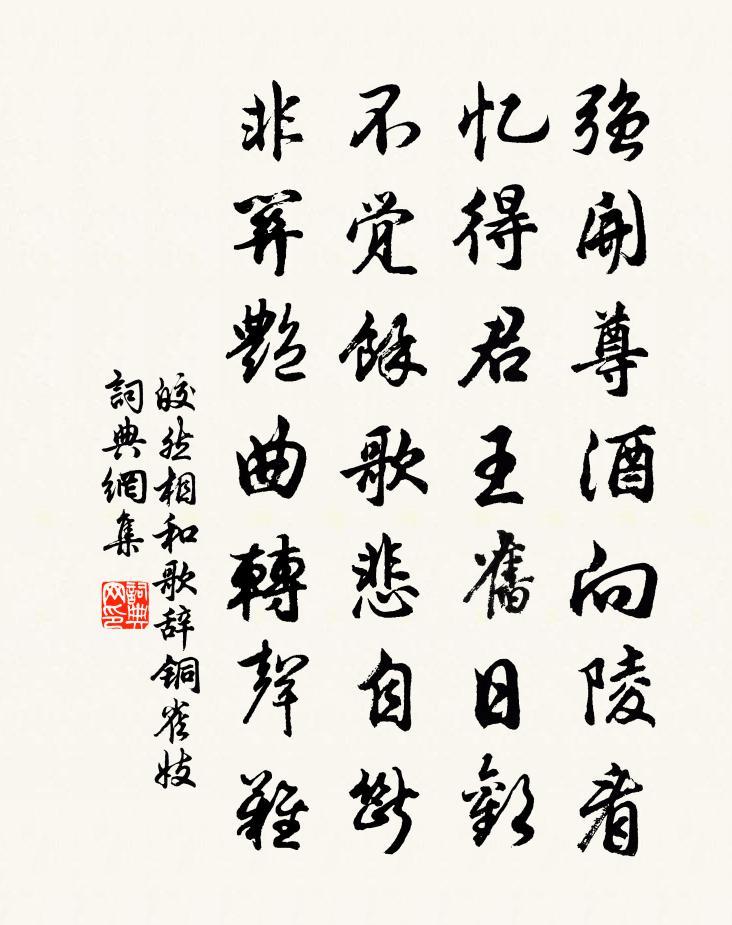 強開尊酒向陵看
忆得君王舊日歡
不觉餘歌悲自斷
非關艷曲轉聲難
皎然相和歌辞銅雀妓
詞典網集
詞典网印